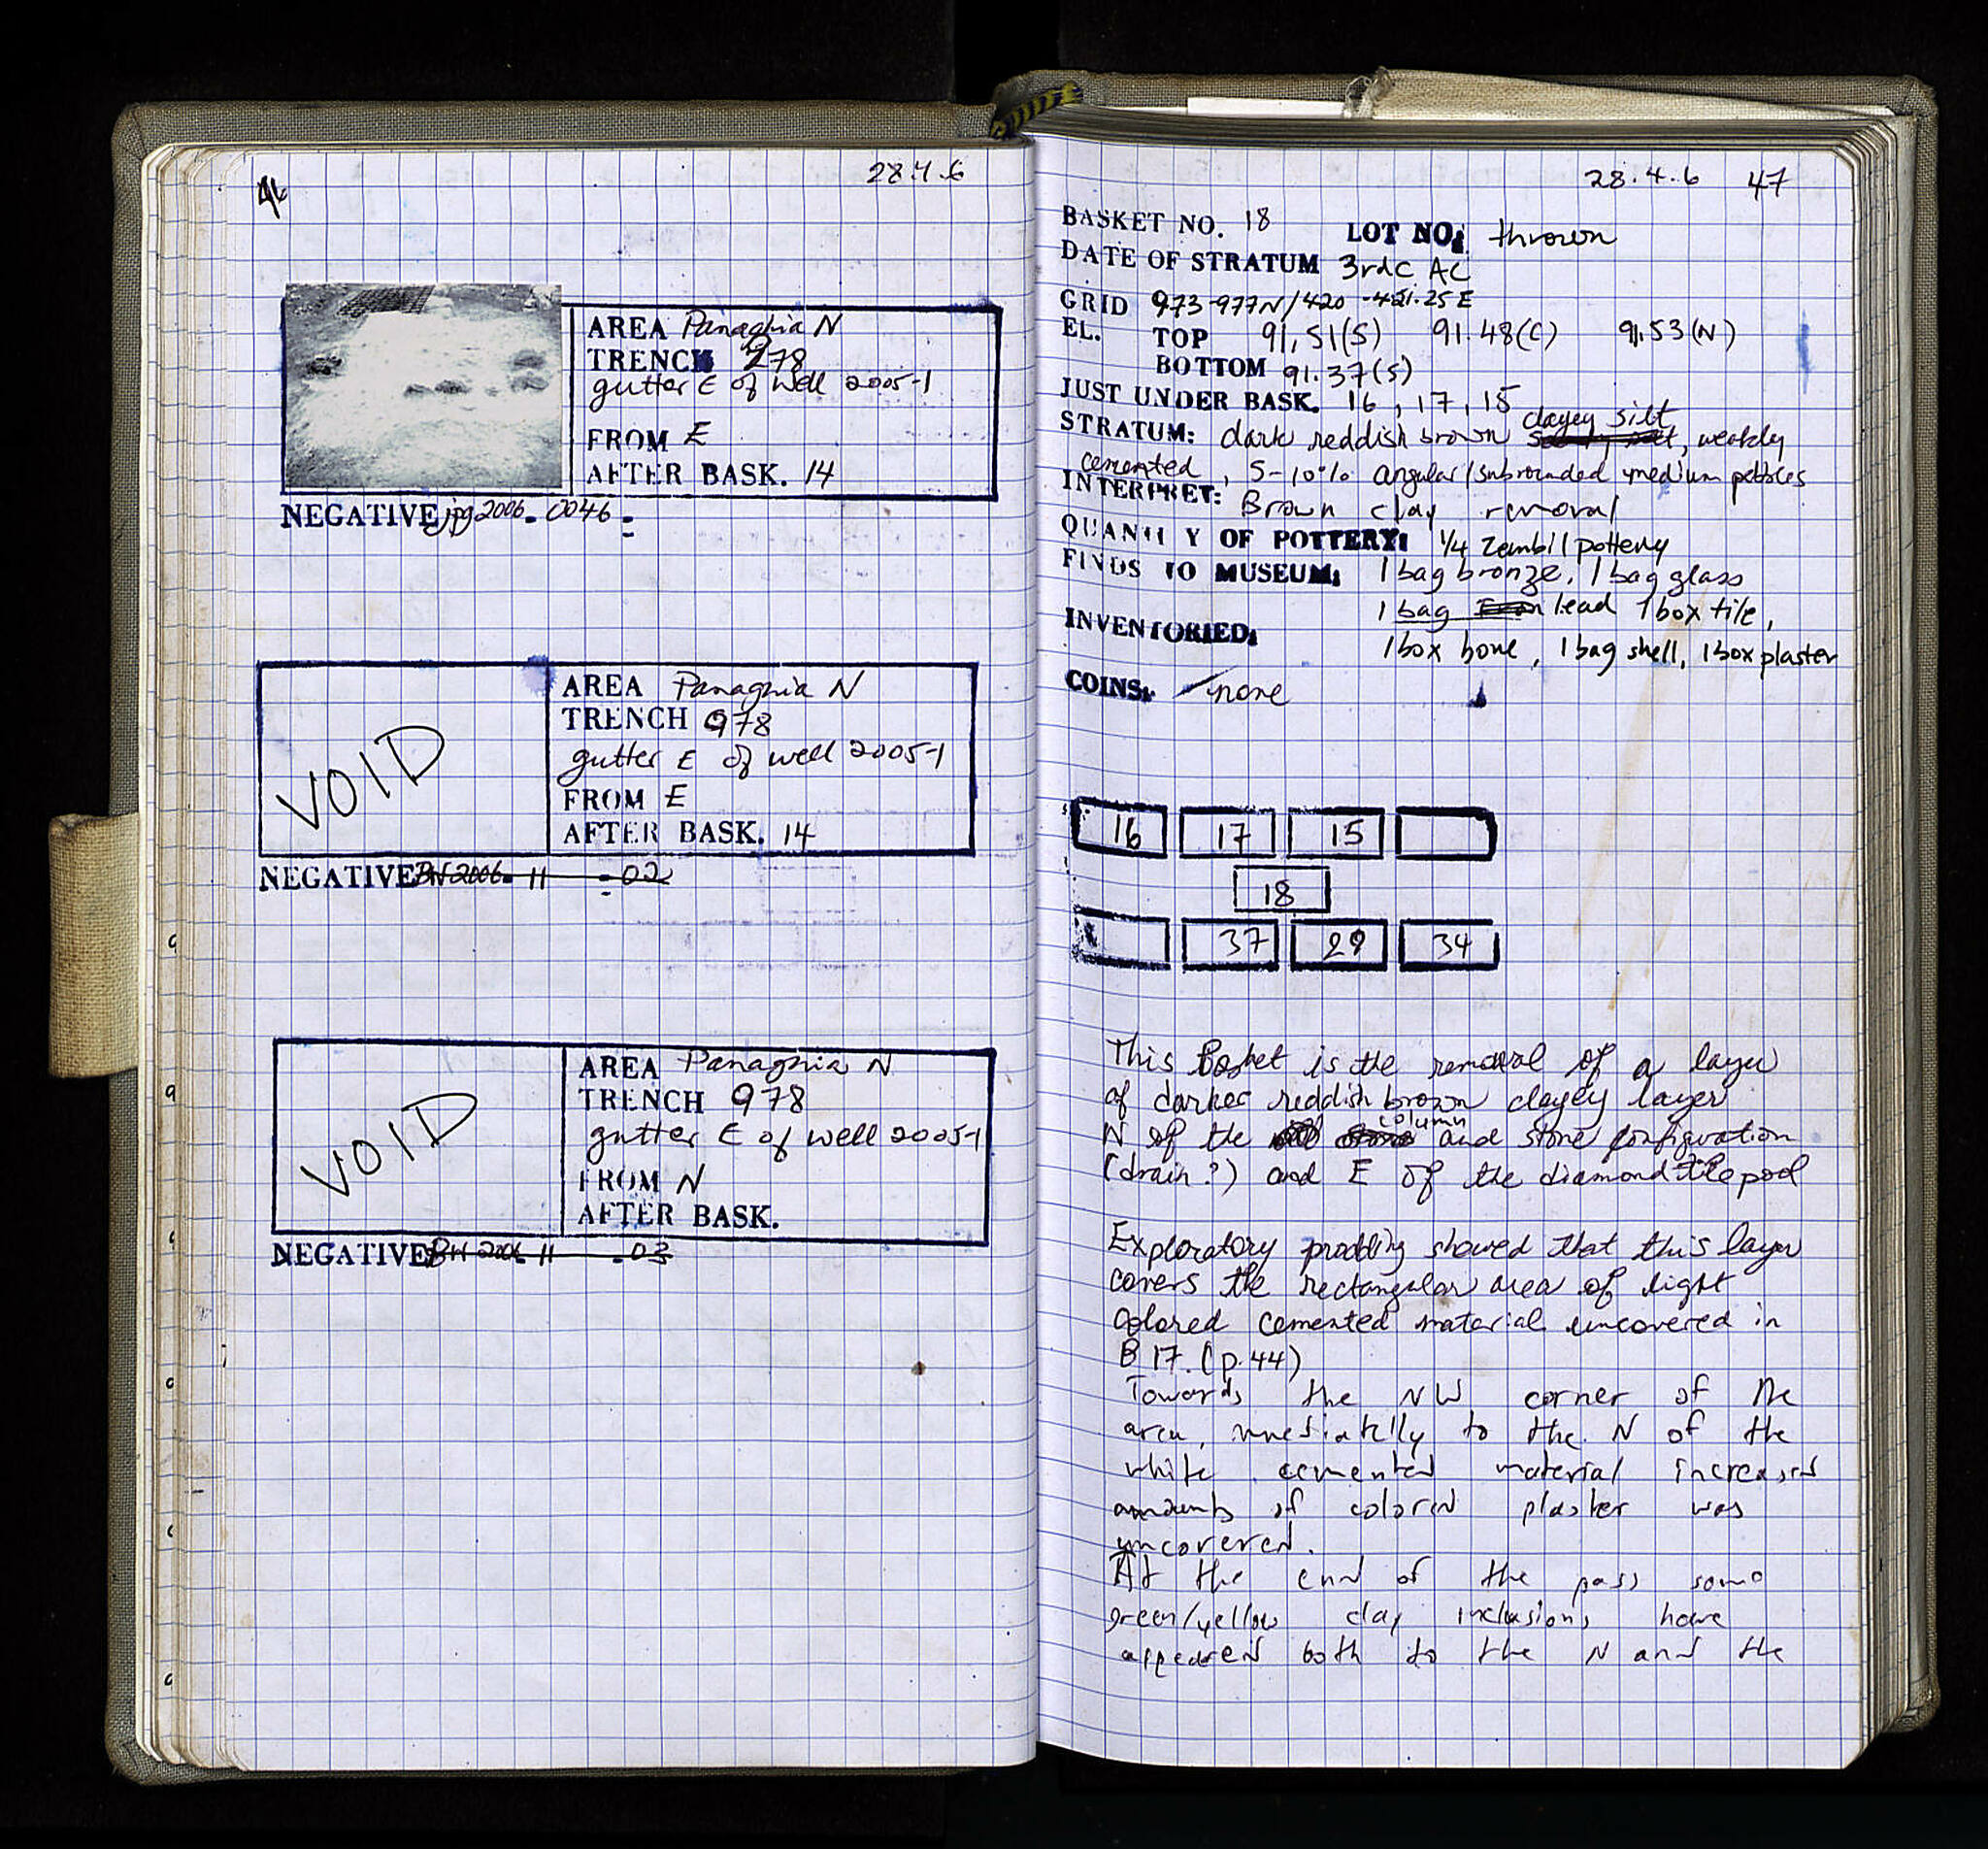 46
28.4.6
AREA Panaghia N
TRENCH 978
gutter E of well 2005-1
FROM E
AFTER BASK. 14
NEGATIVE jpg2006-0046-
VOID
AREA Panaghia N
TRENCH 978
gutter E of well 2005-1
FROM E
AFTER BASK. 14
NEGATIVE BW 2006-11-02
VOID
AREA Panaghia N
TRENCH 978
gutter E of well 2005-1
FROM N
AFTER BASK.
NEGATIVE BW 2006-11-03
28.4.6 47
BASKET NO. 18 LOT NO: thrown
DATE OF STRATUM 3rd C AC
GRID 973-977N/420-421.25 E
EL. TOP 91.51(S) 91.48(C) 91.53(N)
BOTTOM 91.37(S)
JUST UNDER BASK. 16, 17, 15
STRATUM: dark reddish brown clayey silt, weakly
cemented, 5-10% angular/subrounded medium pebbles
INTERPRET: Brown clay removal
QUANTITY OF POTTERY: 1/4 zembil pottery
FINDS TO MUSEUM: 1 bag bronze, 1 bag glass
1 bag lead 1 box tile,
INVENTORIED:
1 box bone, 1 bag shell, 1 box plaster
COINS: none
16 17 15
18
37 29 34
This basket is the removal of a layer
of darker reddish brown clayey layer
N of the column and stone configuration
(drain?) and E of the diamond tile pool
Exploratory prodding showed that this layer
covers the rectangular area of light
colored cemented material uncovered in
B 17. (p.44)
Towards the NW corner of the
area, immediatelly to the N of the
white cemented material increased
amounts of colored plaster was
uncovered.
At the end of the pass some
green/yellow clay inclusions have
appeared both to the N and the